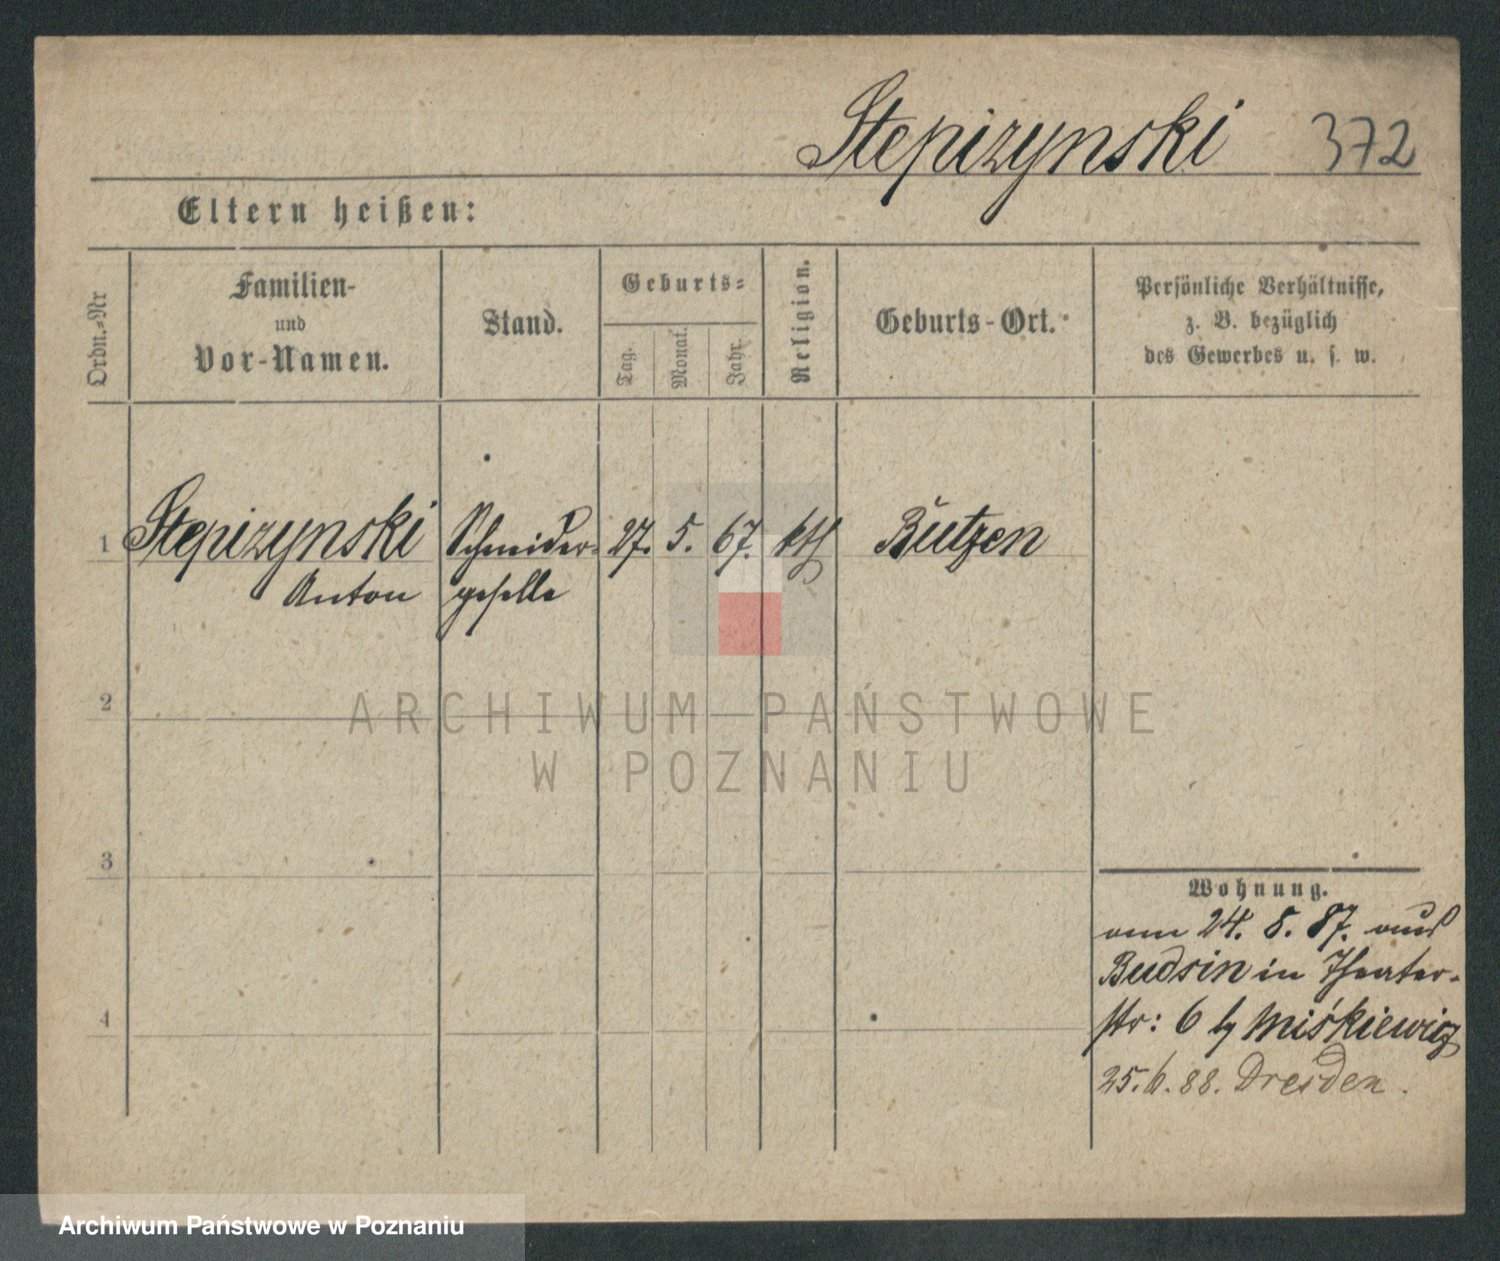 Stepizynski 372
Eltern heißen:
Ordn.=Nr
Familien-
und
Vor-Namen.
Stand.
Geburts=
Tag.
Monat.
Jahr.
Religion.
Geburts-Ort.
Persönliche Verhältnisse,
z. B. bezüglich
des Gewerbes u. s. w.
1 Stepizynski Schneider- 27. 5. 67. kth Butzen
Anton geselle
2
3
4
Wohnung.
24. 8. 87. aus
Budsin in Theater-
str: 6 b/ Miśkiewicz
25. 6. 88. Dresden.
ARCHIWUM PAŃSTWOWE
W POZNANIU
Archiwum Państwowe w Poznaniu